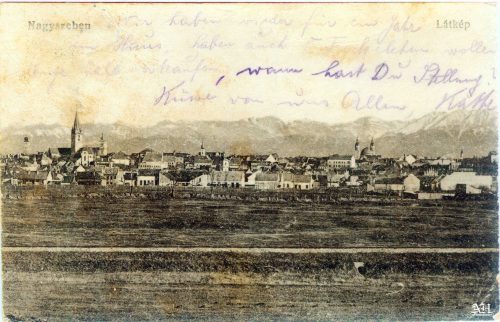 Nagyszeben
Látkép
Wir haben wieder für ein Jahr
ein Haus, haben auch
verkaufen, wann hast Du Stellung.
Küsse von uns Allen Käthe